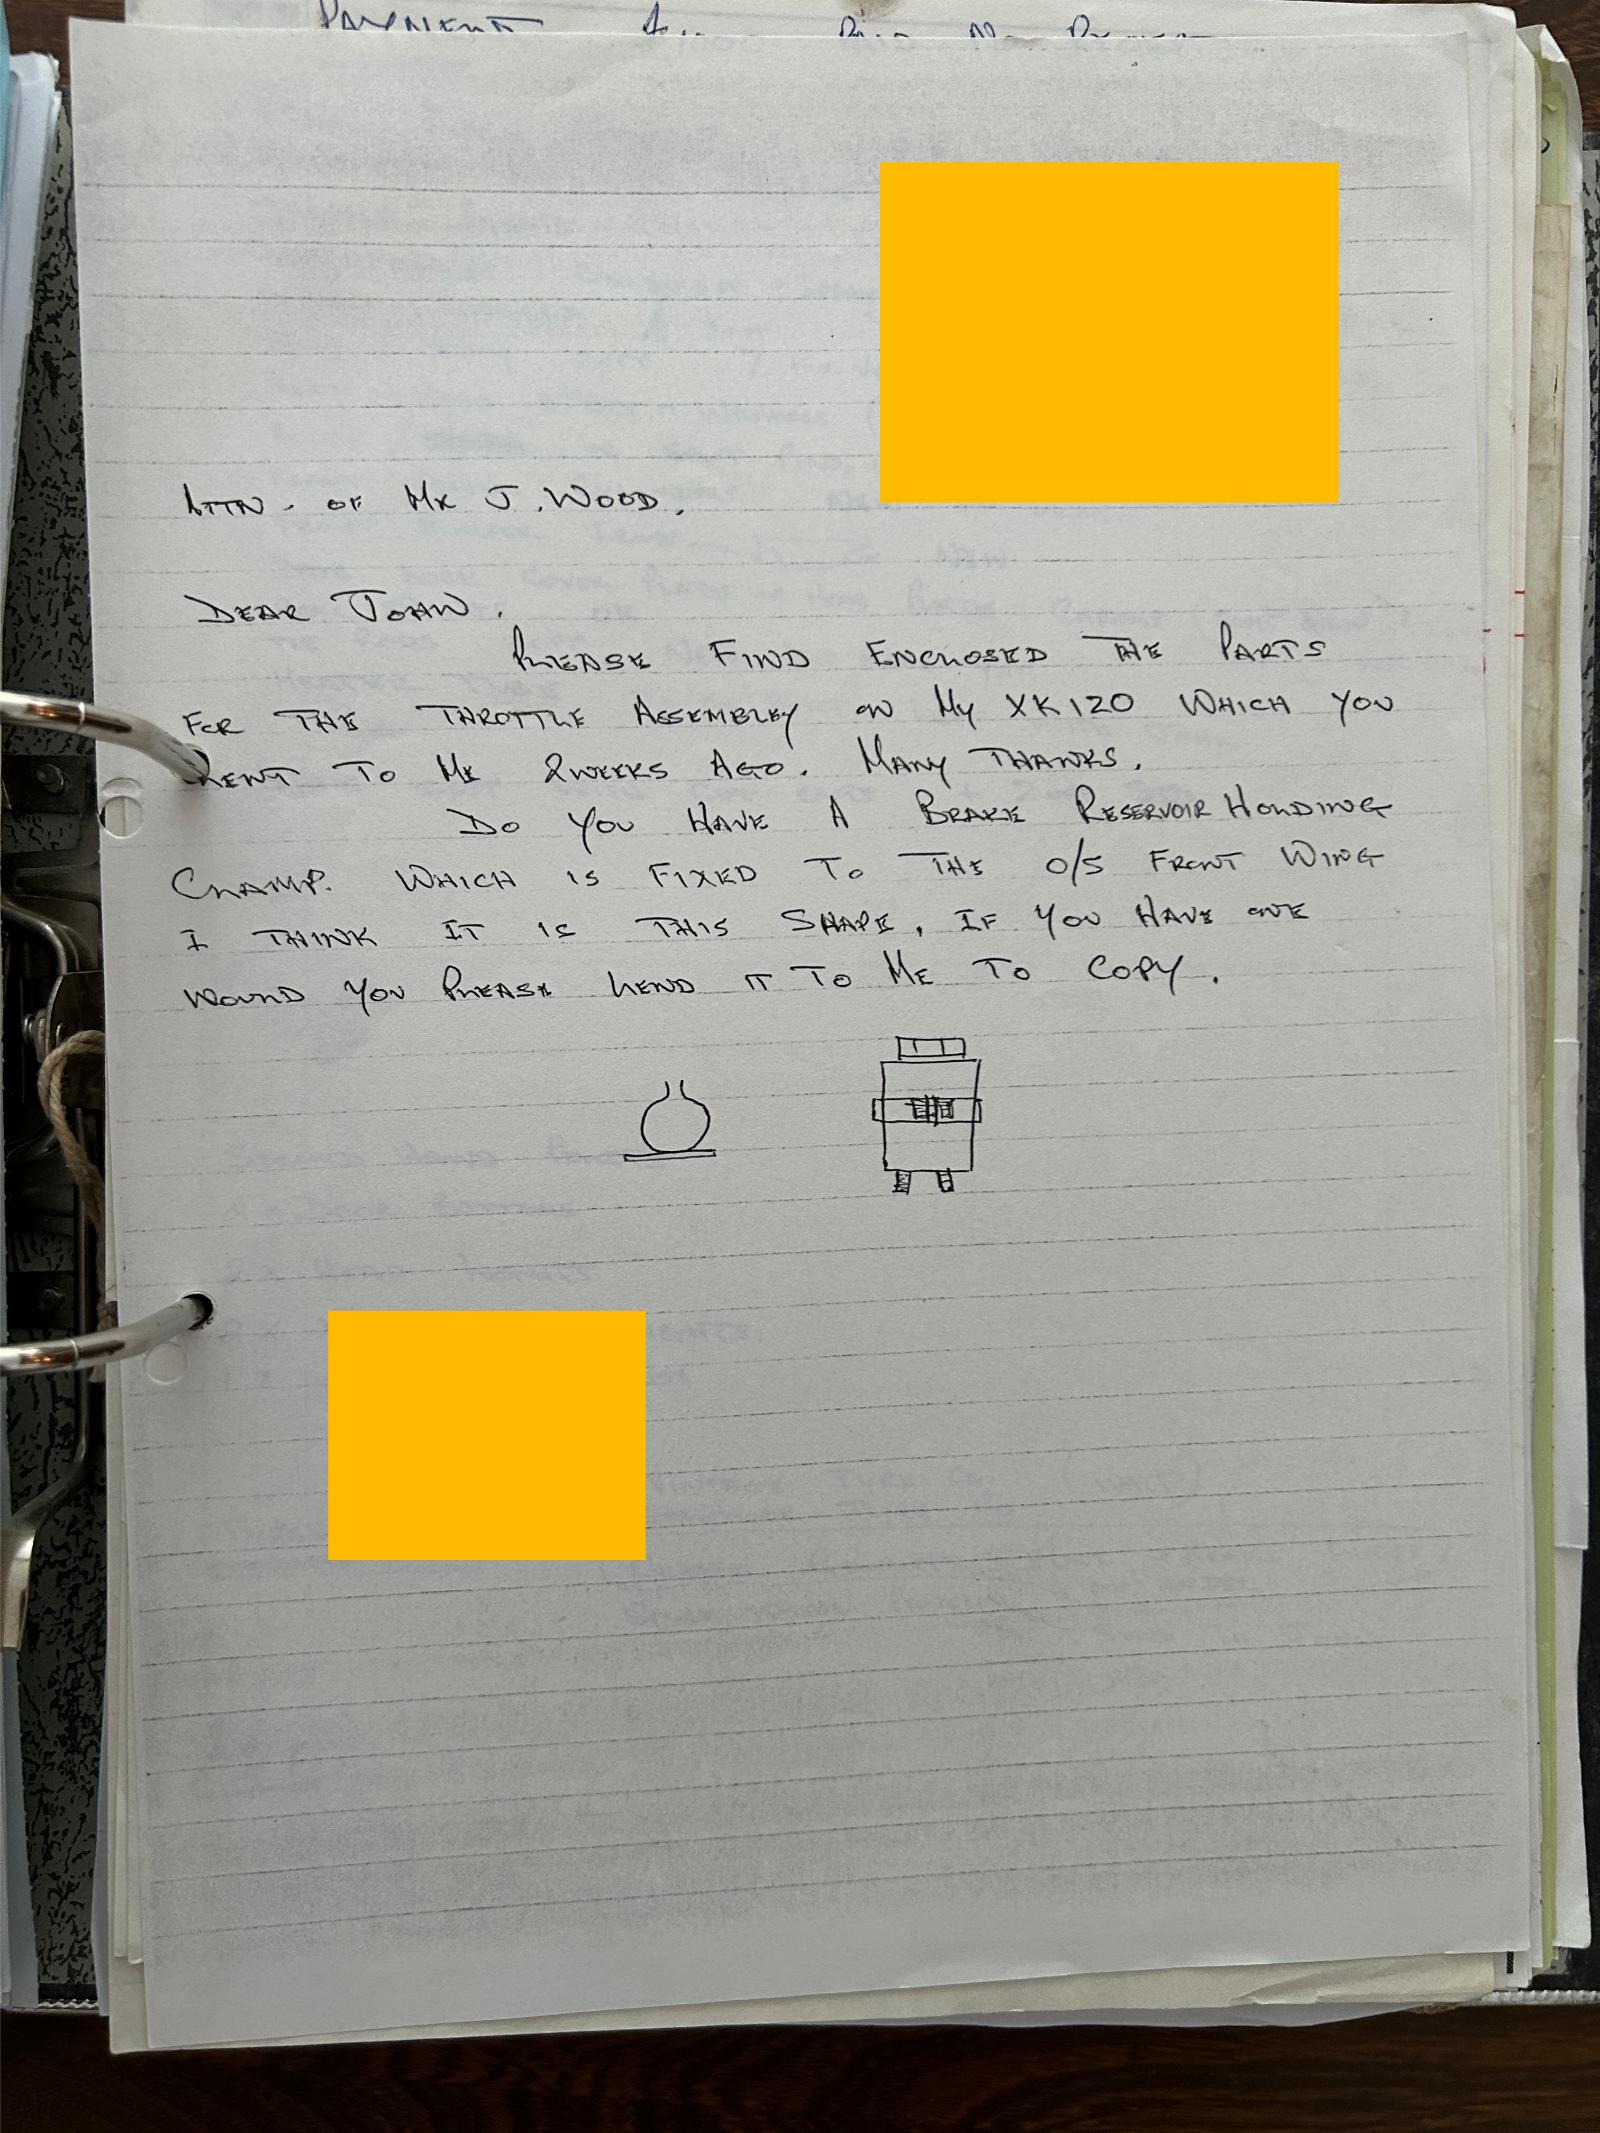 PAYMENT
ATTN. OF MR J. WOOD.
DEAR JOHN.
PLEASE FIND ENCLOSED THE PARTS
FOR THE THROTTLE ASSEMBLEY ON MY XK120 WHICH YOU
LENT TO ME 2 WEEKS AGO. MANY THANKS.
DO YOU HAVE A BRAKE RESERVOIR HOLDING
CLAMP. WHICH IS FIXED TO THE O/S FRONT WING
I THINK IT IS THIS SHAPE, IF YOU HAVE ONE
WOULD YOU PLEASE LEND IT TO ME TO COPY.